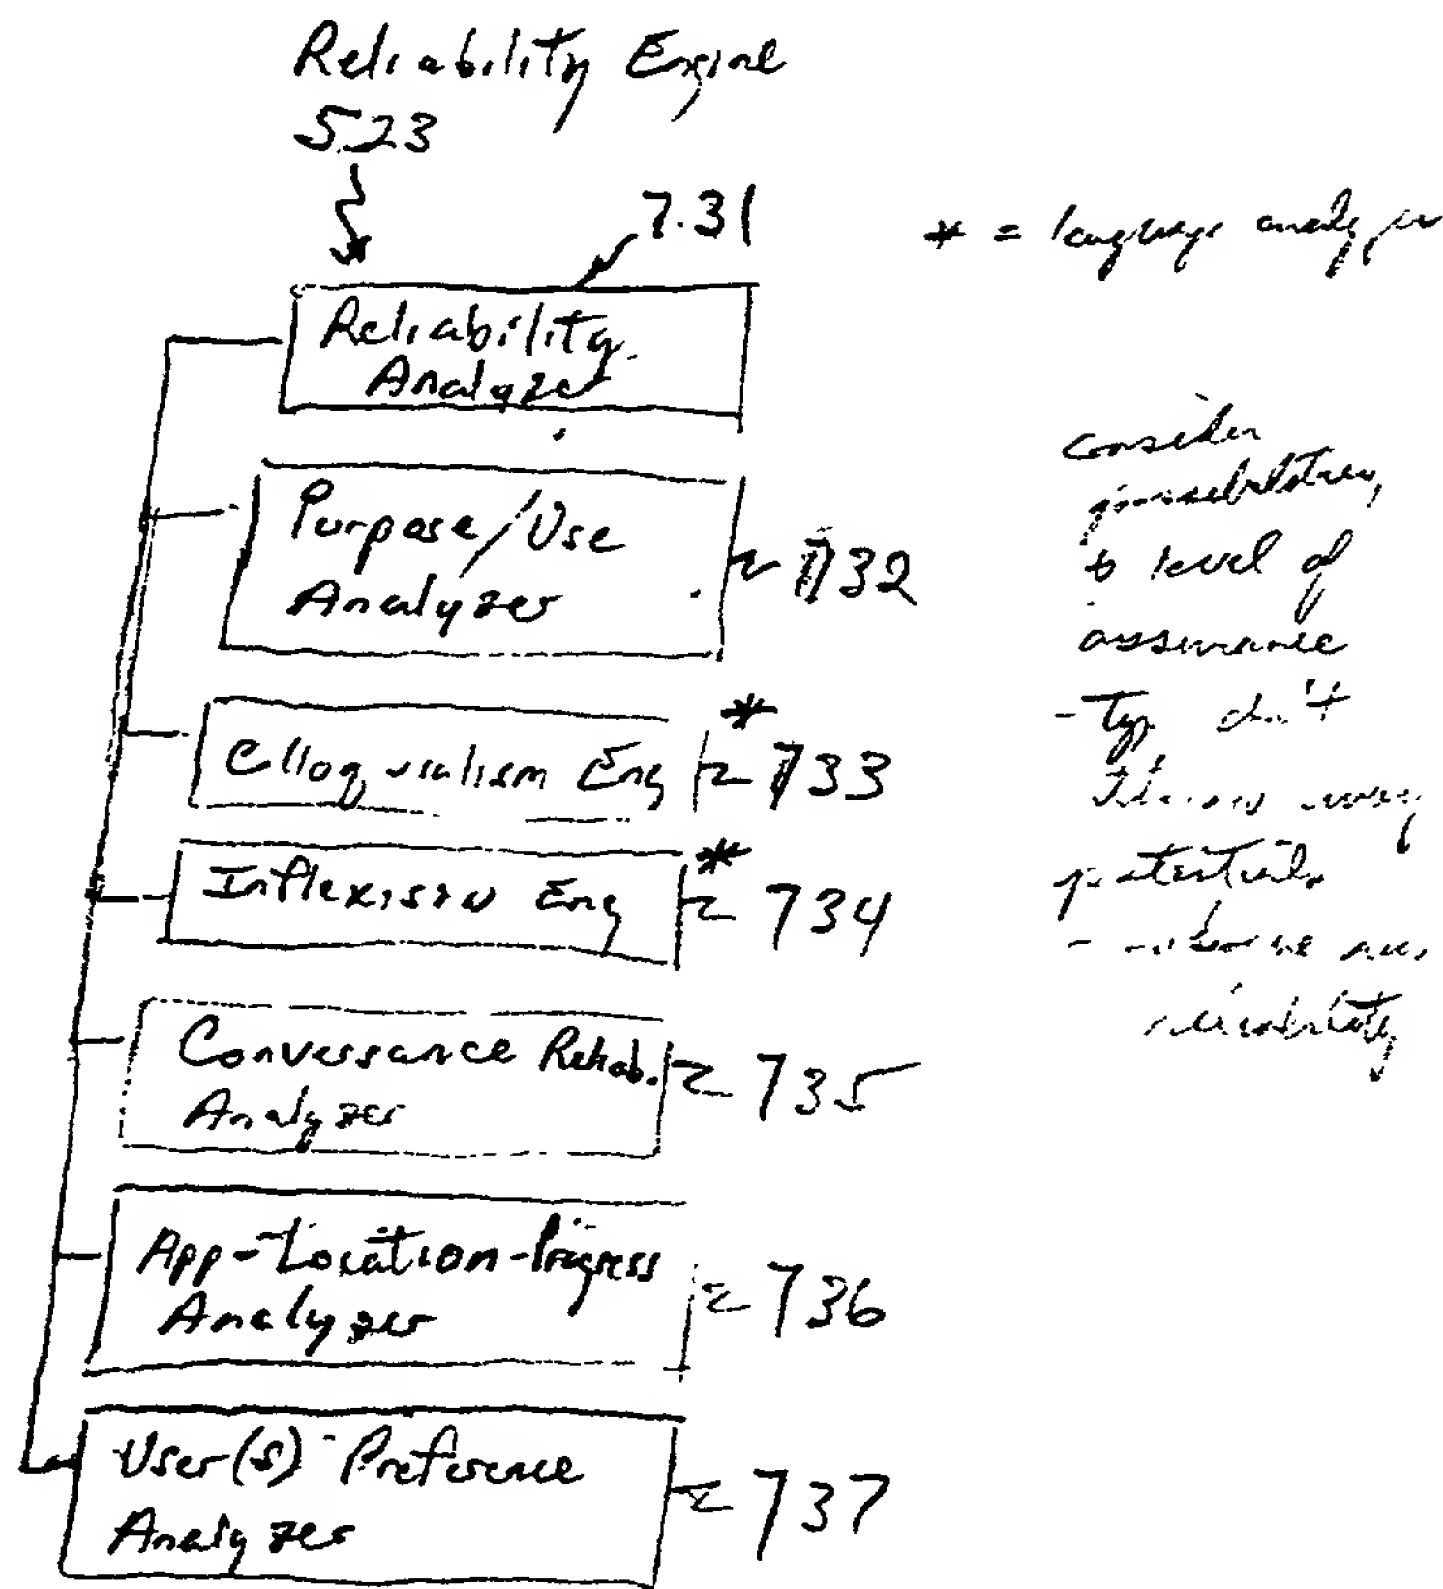 Reliability Engine
523
7.31
* = language analyzer
Reliability
Analyzer
Purpose/Use
Analyzer
732
Clloquialism Eng
*
733
Inflexision Eng
*
734
Conversance Reliab.
Analyzer
735
App-Location-Progress
Analyzer
736
User(s) Preference
Analyzer
737
consider
possibilities,
level of
assurance
- Typ. don't
throw away
potentials
-